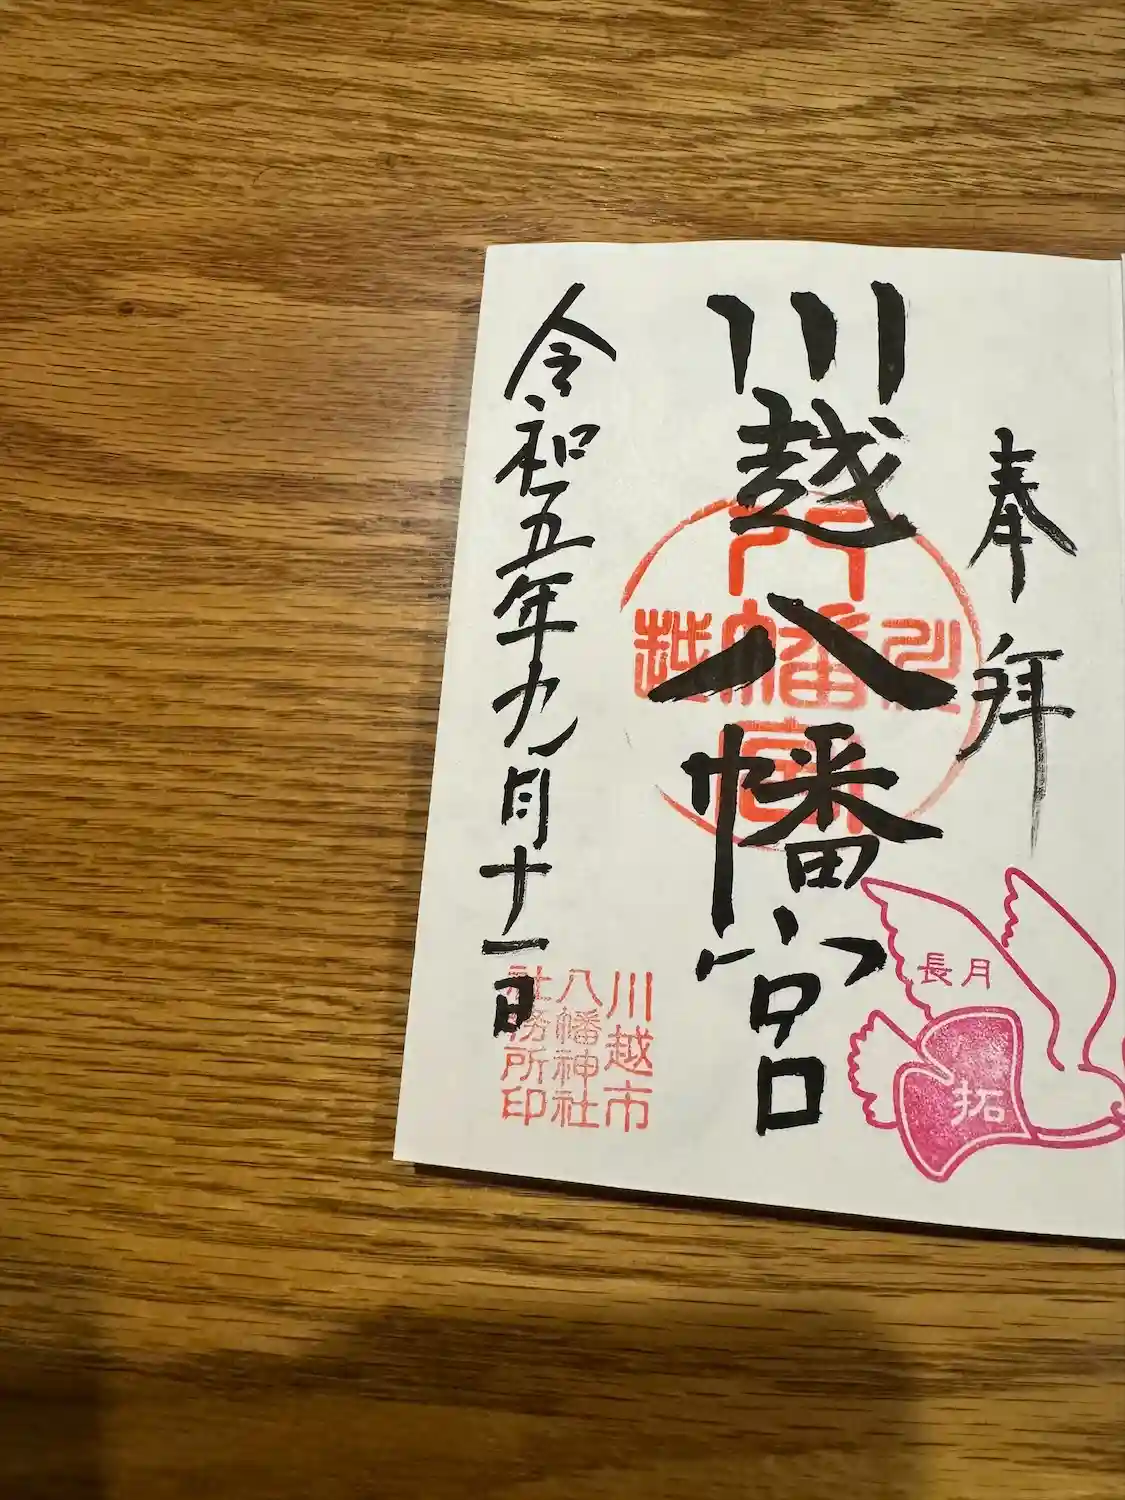 奉拝
川越八幡宮
令和五年九月十一日
川越
八幡宮
長月
拓
川越市
八幡神社
社務所印